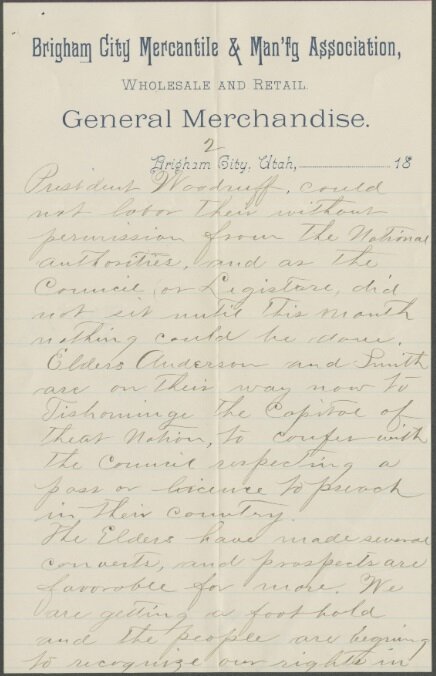 Brigham City Mercantile & Man'f'g Association,
WHOLESALE AND RETAIL
General Merchandise.
2
Brigham City, Utah, 18
President Woodruff, could
not labor their without
permission from the National
authorities, and as the
Council, or Legisture, did
not sit until this month
nothing could be done.
Elders Anderson and Smith
are on their way now to
Tishominge the Capitol of
that Nation, to confer with
the Council respecting a
pass or licence to preach
in their country.
The Elders have made several
converts, and prospects are
favorable for more. We
are getting a foot hold
and the people are begining
to recognize our rights in